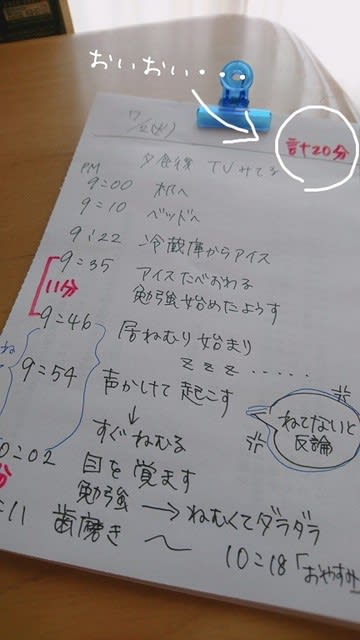 おいおい・・・
7/12(火)
計 20分
夕食後 TVみてる
PM
9:00 机へ
9:10 ベッドへ
9:22 冷蔵庫からアイス
9:35 アイスたべおわる
勉強始めたようす
11分
9:46 居ねむり始まり
z z z ・・・・・
9:54 声かけして起こす
ねてないと
反論
↓
すぐねむる
0:02 目を覚ます
分
勉強 → ねむくてダラダラ
:11 歯磨き 〜 10:18「おやすみ